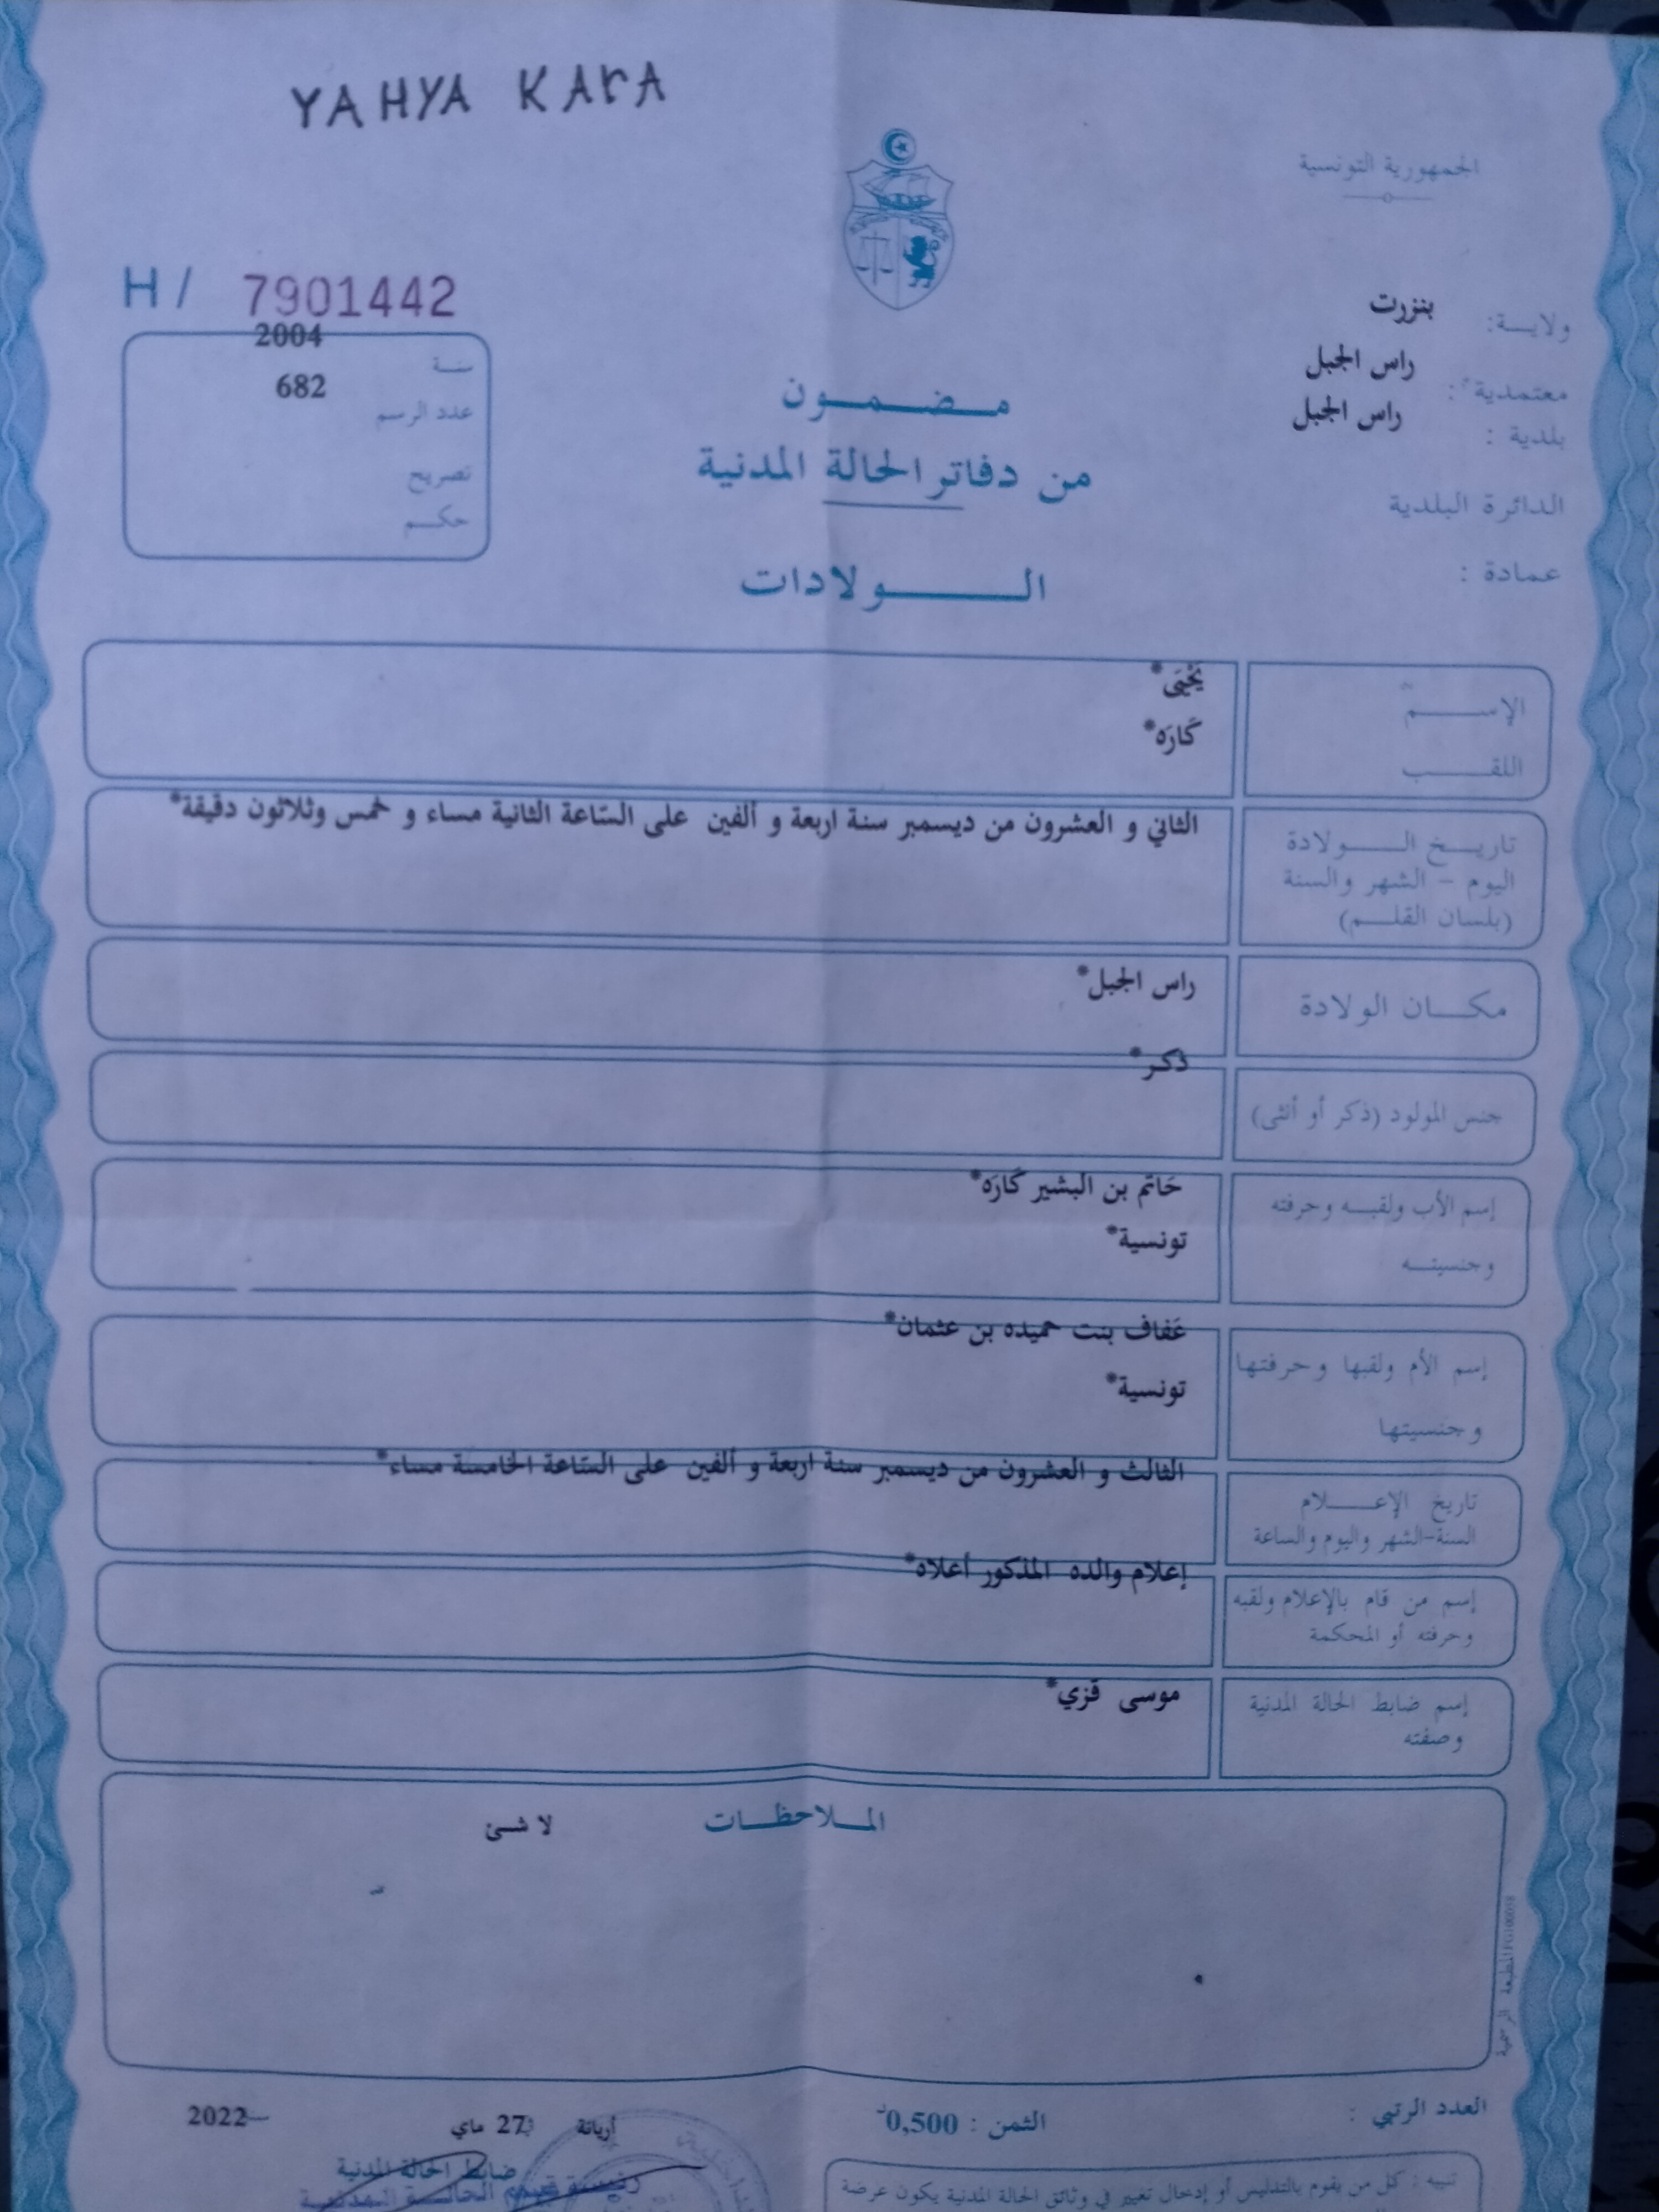 YAHYA KArA
الجمهورية التونسية
H / 7901442
ولايـــة: بنزرت
معتمدية: راس الجبل
بلدية : راس الجبل
الدائرة البلدية
عمادة :
سنــة 2004
عدد الرسم 682
تصريح
حكــم
مــضــمــون
من دفاتر الحالة المدنية
الـــــولادات
الإســـم يَحْيَى*
اللقـــب كَارَه*
تاريــخ الــــولادة الثاني و العشرون من ديسمبر سنة اربعة و ألفين على السّاعة الثانية مساء و خمس وثلاثون دقيقة*
اليوم – الشهر والسنة
(بلسان القلــم)
مكــان الولادة راس الجبل*
جنس المولود (ذكر أو أنثى) ذكر*
إسم الأب ولقبــه وحرفته حَاتم بن البشير كَارَه*
وجنسيتــه تونسية*
إسم الأم ولقبها وحرفتها عَفاف بنت حميده بن عثمان*
وجنسيتها تونسية*
تاريخ الإعــــلام الثالث و العشرون من ديسمبر سنة اربعة و ألفين على السّاعة الخامسة مساء*
السنة-الشهر واليوم والساعة
إسم من قام بالإعلام ولقبه إعلام والده المذكور أعلاه*
وحرفته أو المحكمة
إسم ضابط الحالة المدنية موسى قزي*
وصفته
الملاحظــات لا شئ
المطبعة الرسمية
العدد الرتبي :
الثمن : 0,500د
أريانة 27 ماي سنة 2022
ضابط الحالة المدنية
تنبيه : كل من يقوم بالتدليس أو إدخال تغيير في وثائق الحالة المدنية يكون عرضة